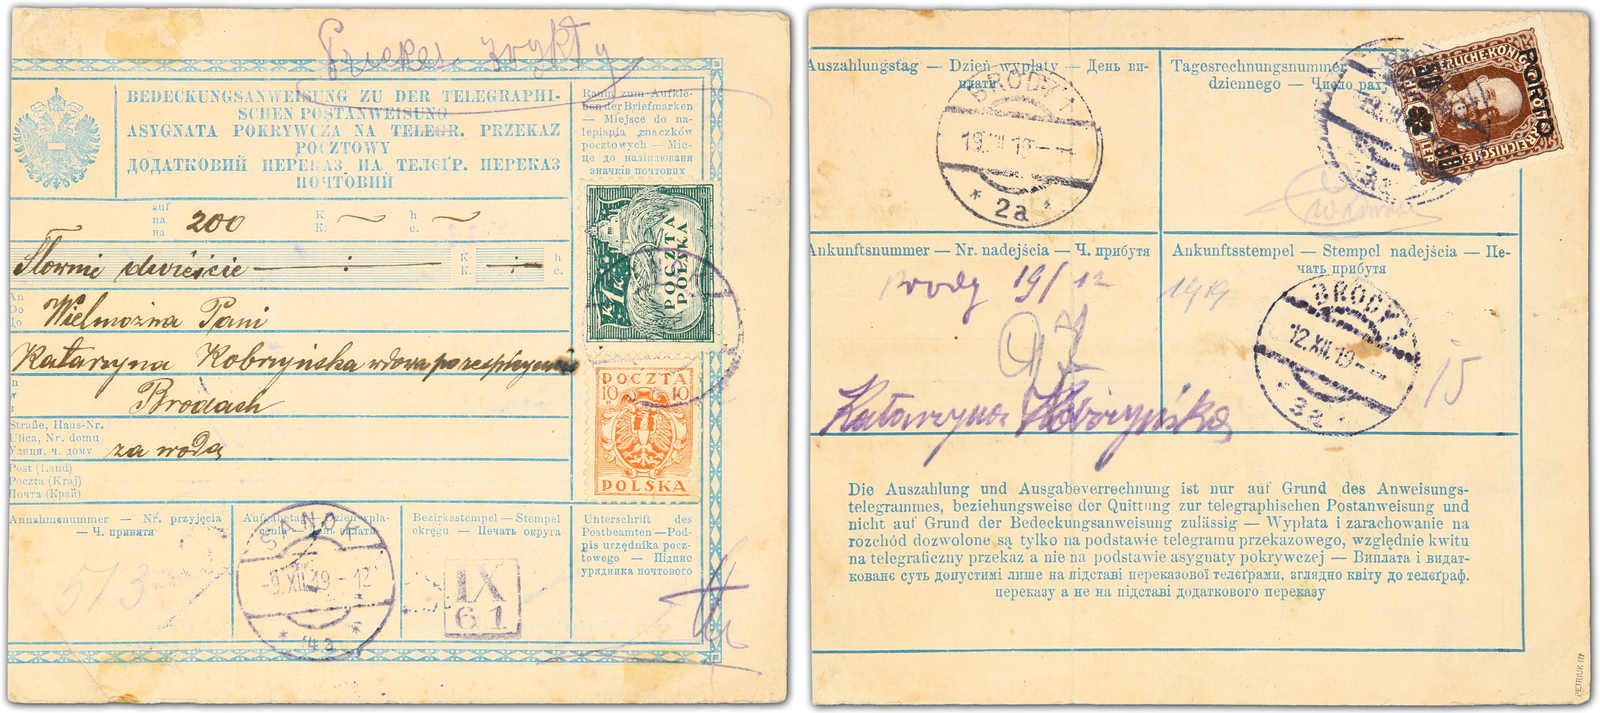 Przekaz zwykły
BEDECKUNGSANWEISUNG ZU DER TELEGRAPHI-
SCHEN POSTANWEISUNG
ASYGNATA POKRYWCZA NA TELEGR. PRZEKAZ
POCZTOWY
ДОДАТКОВИЙ ПЕРЕКАЗ НА ТЕЛЄҐР. ПЕРЕКАЗ
ПОЧТОВИЙ
Raum zum Aufkle-
ben der Briefmarken
— Miejsce do na-
lepiania znaczków
pocztowych — Міс-
це до наліплюваня
значків почтових
auf
na
на
200
K
K.
h
c.
Słownie dwieście
K
K.
h
c.
An
Do
До
Wielmożna Pani
Katarzyna Kobrzyńska wdowa po
Brodach
Straße, Haus-Nr.
Ulica, Nr. domu
Улиця, ч. дому
za wodą
Post (Land)
Poczta (Kraj)
Почта (Край)
1 K
POCZTA
POLSKA
POCZTA
10 10
POLSKA
Annahmenummer — Nr. przyjęcia
— Ч. принятя
513
SANOK
-9.XII.19-12
* 4a *
Bezirksstempel — Stempel
okręgu — Печать округа
IX
61
Unterschrift des
Postbeamten — Pod-
pis urzędnika pocz-
towego — Підпис
урядника почтового
Auszahlungstag — Dzień wypłaty — День ви-
плати
BRODY 1
19.XII.19
* 2a *
Tagesrechnungsnummer
dziennego — Число раху
PORTO
50
50
Ankunftsnummer — Nr. nadejścia — Ч. прибутя
Brody 19/12 1919
Ankunftsstempel — Stempel nadejścia — Пе-
чать прибутя
BRODY 1
12.XII.19
* 3a *
15
Katarzyna Kobrzyńska
Die Auszahlung und Ausgabeverrechnung ist nur auf Grund des Anweisungs-
telegrammes, beziehungsweise der Quittung zur telegraphischen Postanweisung und
nicht auf Grund der Bedeckungsanweisung zulässig — Wypłata i zarachowanie na
rozchód dozwolone są tylko na podstawie telegramu przekazowego, względnie kwitu
na telegraficzny przekaz a nie na podstawie asygnaty pokrywczej — Виплата і видат-
коване суть допустимі лише на підставі переказової телєґрами, зглядно квіту до телєґраф.
переказу а не на підставі додаткового переказу
PETRIUK